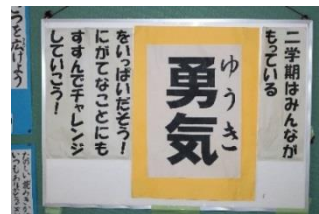 二学期はみんなが
もっている
ゆうき
勇気
をいっぱいだそう！
にがてなことにも
すすんでチャレンジ
していこう！
うを広げよう